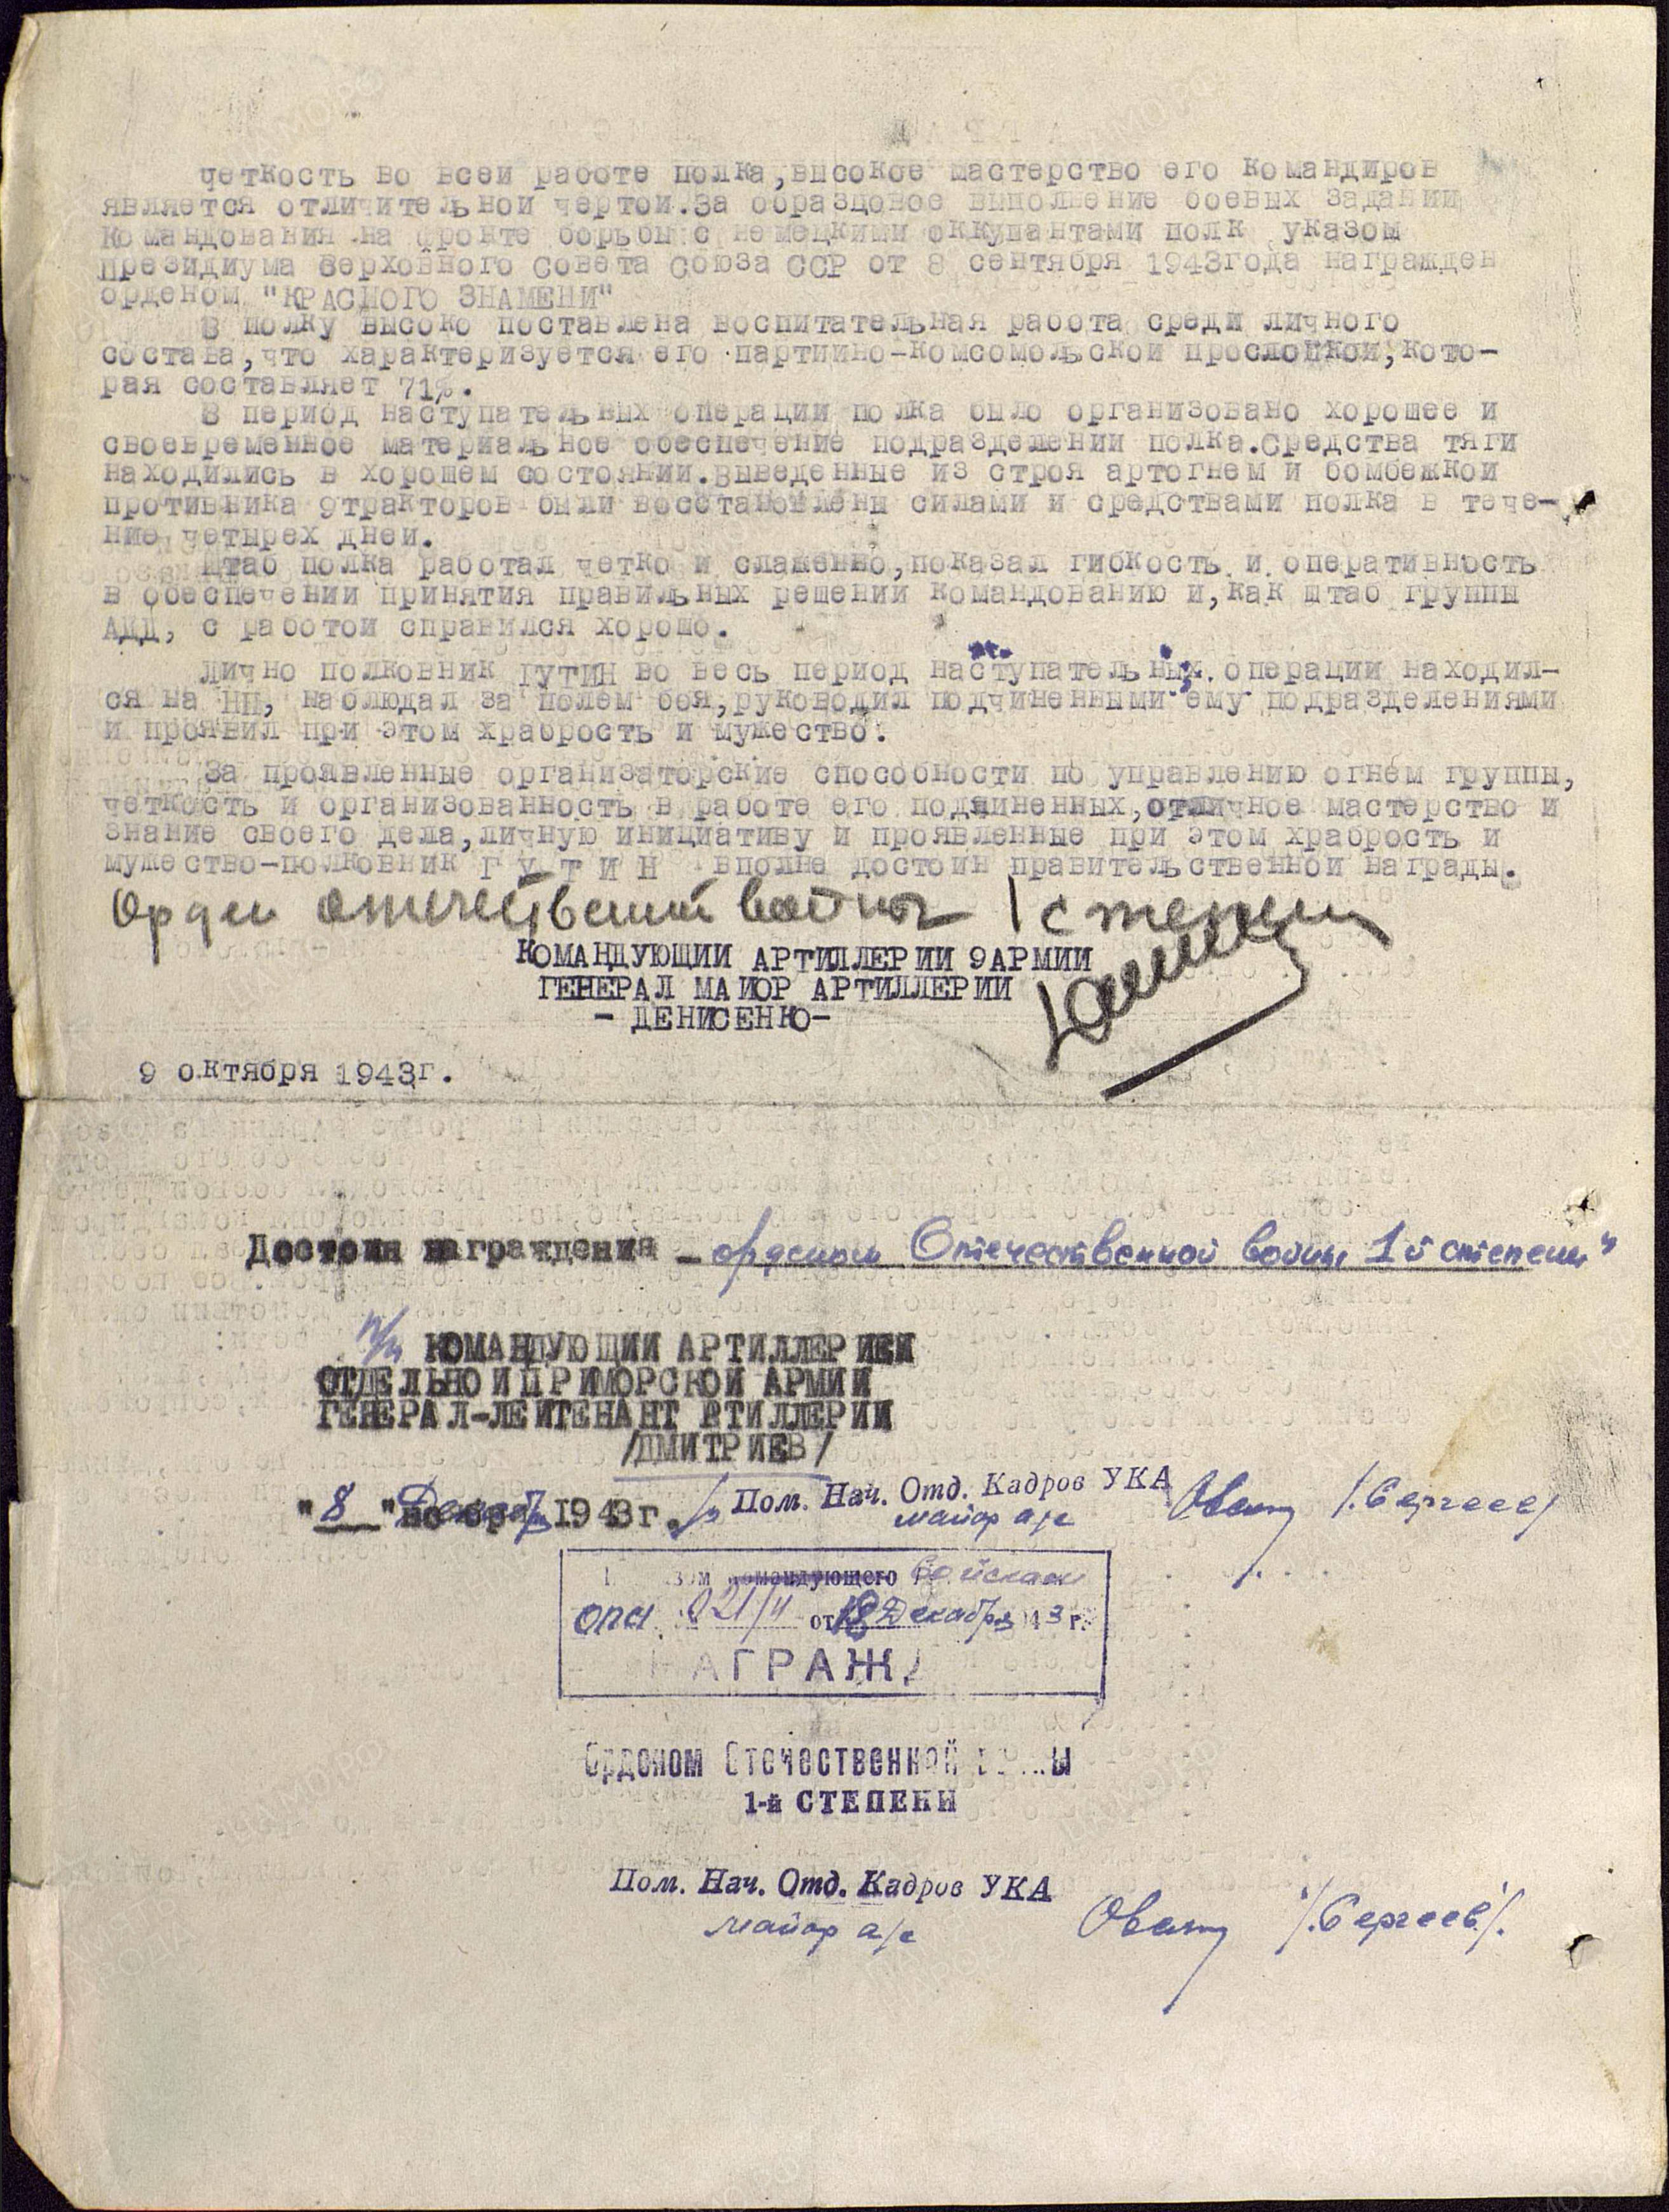 четкость во всей работе полка,высокое мастерство его командиров
является отличительной чертой.За образцовое выполнение боевых заданий
командования на фронте борьбы с немецкими оккупантами полк указом
президиума Верховного Совета Союза ССР от 8 сентября 1943года награжден
орденом "КРАСНОГО ЗНАМЕНИ"
В полку высоко поставлена воспитательная работа среди личного
состава,что характеризуется его партийно-комсомольской прослойкой,кото-
рая составляет 71%.
В период наступательных операций полка было организовано хорошее и
своевременное материальное обеспечение подразделений полка.Средства тяги
находились в хорошем состоянии.Выведенные из строя артогнем и бомбежкой
противника 9тракторов были восстановлены силами и средствами полка в тече-
ние четырех дней.
Штаб полка работал четко и слаженно,показал гибкость и оперативность
в обеспечении принятия правильных решений командованию и,как штаб группы
АДД, с работой справился хорошо.
Лично полковник ГУТИН во весь период наступательных операций находил-
ся на НП, наблюдал за полем боя,руководил подчиненными ему подразделениями
и проявил при этом храбрость и мужество.
За проявленные организаторские способности по управлению огнем группы,
четкость и организованность в работе его подчиненных,отличное мастерство и
знание своего дела,личную инициативу и проявленные при этом храбрость и
мужество-полковник ГУТИН вполне достоин правительственной награды.
Орден отечественной войны 1 степени
КОМАНДУЮЩИЙ АРТИЛЛЕРИИ 9АРМИИ
ГЕНЕРАЛ МАЙОР АРТИЛЛЕРИИ
- ДЕНИСЕНКО-
9 октября 1943г.
Достоин награждения - орденом Отечественной войны 1й степени"
п/п КОМАНДУЮЩИЙ АРТИЛЛЕРИЕЙ
ОТДЕЛЬНОЙ ПРИМОРСКОЙ АРМИИ
ГЕНЕРАЛ-ЛЕЙТЕНАНТ РТИЛЛЕРИИ
/ДМИТРИЕВ/
"8" Декабря 1943г.
Пом. Нач. Отд. Кадров УКА
майор а/с /.Сергеев/
командующего Войсками
ОПА 021/н от 18 Декабря 43 г.
НАГРАЖ
Орденом Отечественной войны
1-й СТЕПЕНИ
Пом. Нач. Отд. Кадров УКА
майор а/с /.Сергеев/.